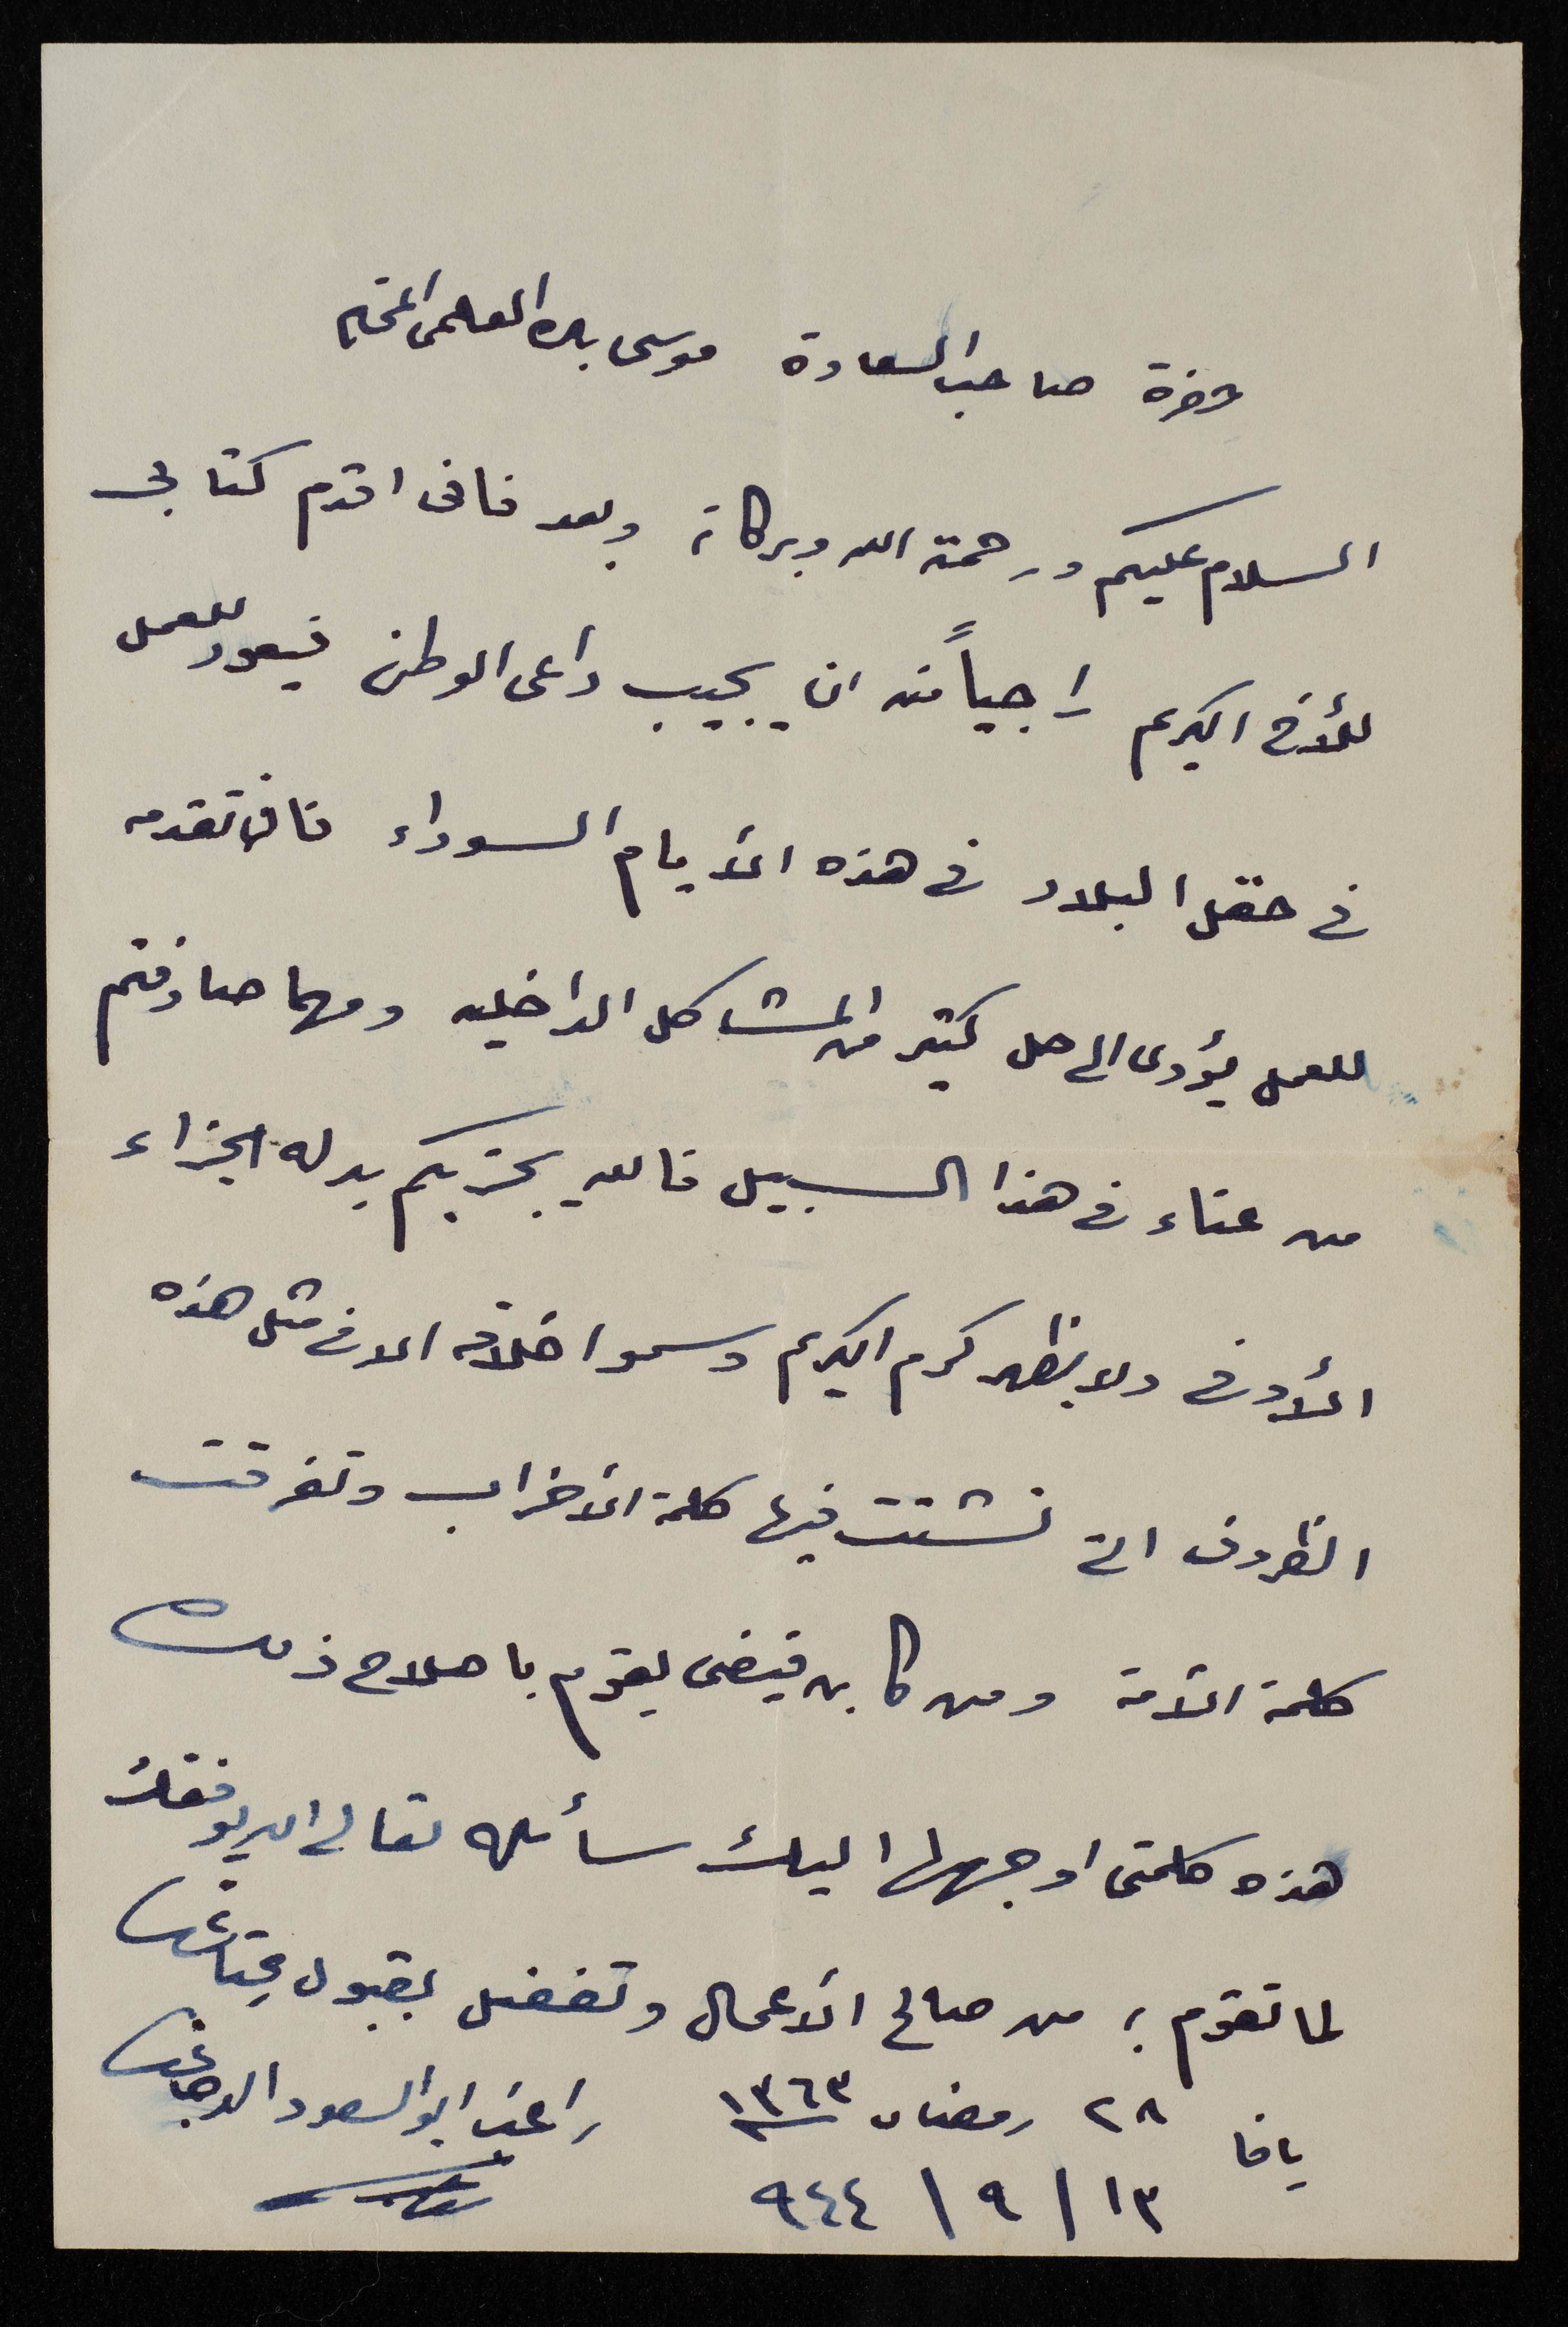 حضرة صاحب السعادة موسى بك العلمي المحترم
السلام عليكم ورحمة الله وبركاته وبعد فانى اقدم كتابى
للأخ الكريم راجياً منه ان يجيب داعى الوطن فيعود للعمل
فى حقل البلاد فى هذه الأيام السوداء فان تقدمه
للعمل يؤدى الى حل كثير من المشاكل الداخليه ومهما صادفتم
من عناء فى هذا السبيل فالله يجزيكم بدله الجزاء
الأوفى ولا يظهر كرم الكريم وسمو اخلاقه الا فى مثل هذه
الظروف التى تشتت فيها كلمة الأحزاب وتفرقت
كلمة الأمة ومن كابن فيضى يقوم باصلاح ذلك
هذه كلمتى اوجهها اليك سائله تعالى ان يوفقك
لما تقوم به من صالح الأعمال وتفضل بقبول
يافا ٢٨ رمضان ١٣٦٣ راغب ابو السعود الدجاني
١٣ / ٩ / ٩٤٤